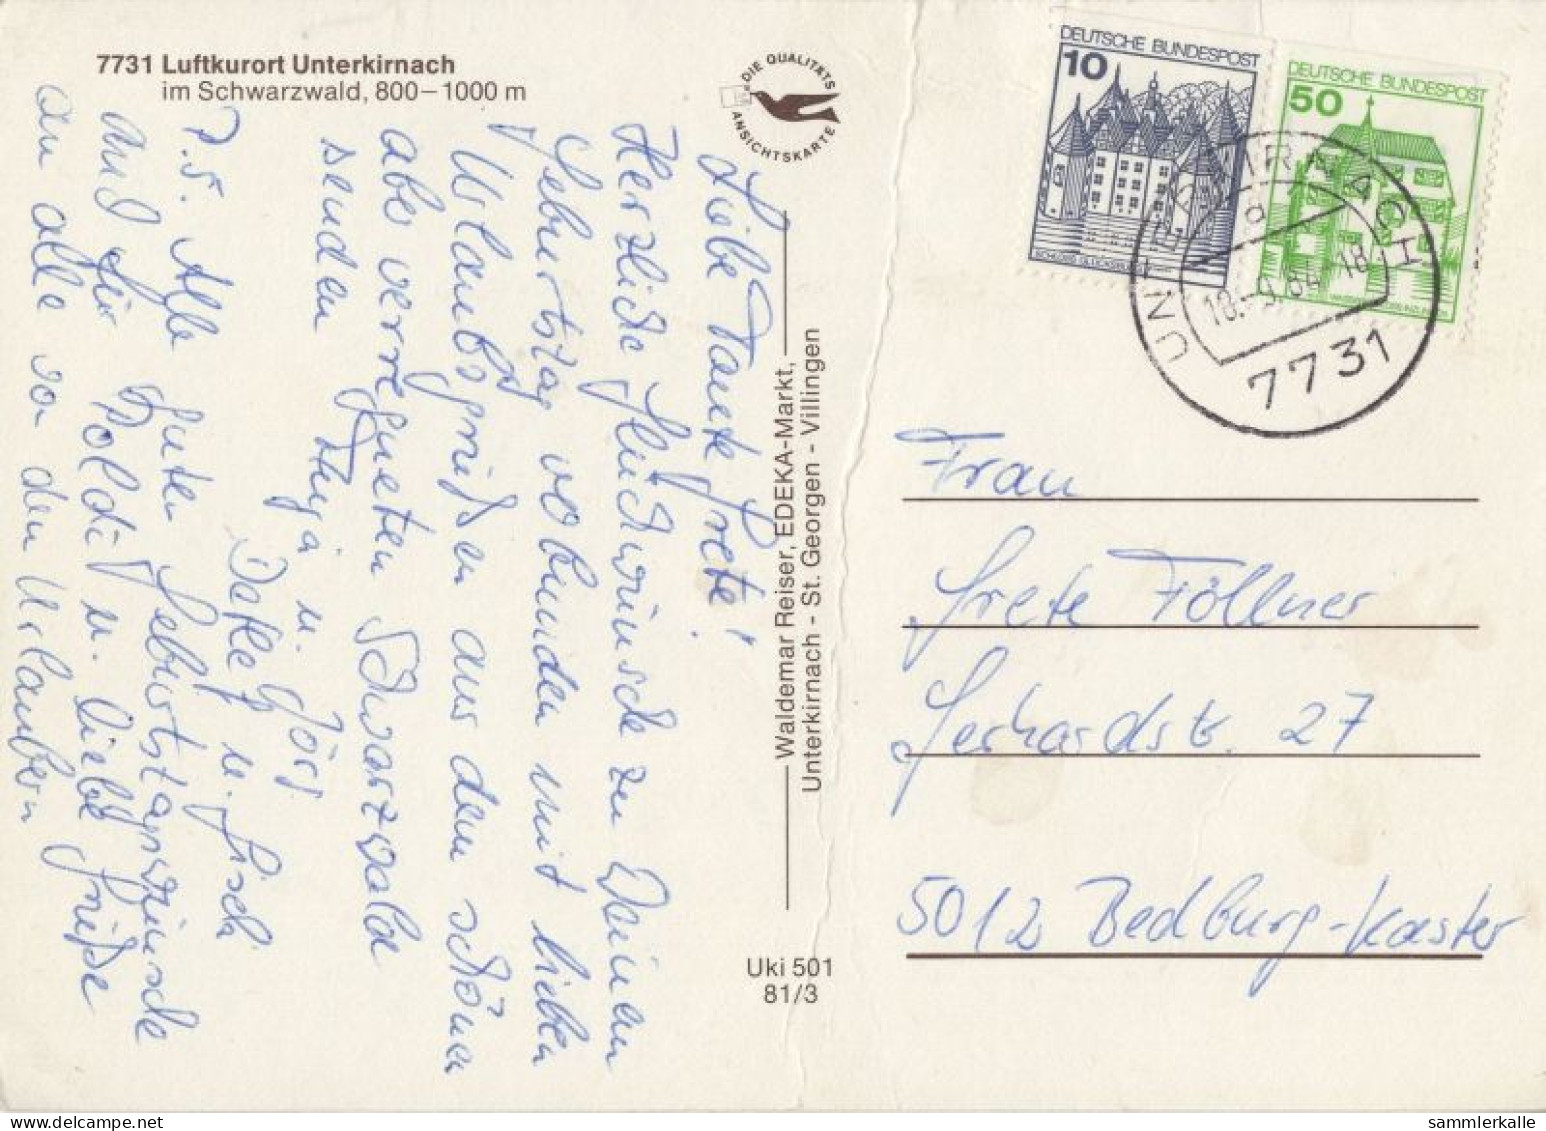 7731 Luftkurort Unterkirnach
im Schwarzwald, 800–1000 m
DIE QUALITÄTS
ANSICHTSKARTE
Liebe Tante Grete!
Herzliche Glückwünsche zu Deinem
Geburtstag verbunden mit lieben
Urlaubsgrüßen aus dem schönen
aber verregneten Schwarzwald
senden Anja u. Jörg
Detlef u. Gisela
P.S. Alle guten Geburtstagswünsche
auch für Poldi u. liebe Grüße
an alle von den Urlaubern
Waldemar Reiser, EDEKA-Markt,
Unterkirnach - St. Georgen - Villingen
Uki 501
81/3
DEUTSCHE BUNDESPOST
10
DEUTSCHE BUNDESPOST
50
UNTERKIRNACH
a
18.-9.84-18
7731
Frau
Grete Föllner
Gerhardstr. 27
5012 Bedburg-Kaster
sammlerkalle
www.delcampe.net